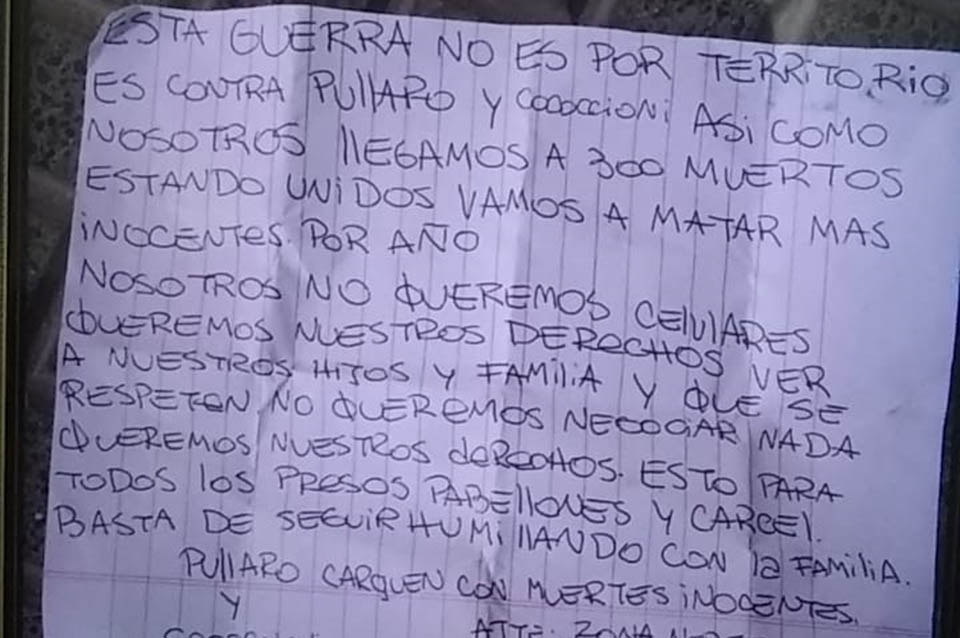 ESTA GUERRA NO ES POR TERRITORIO
ES CONTRA PULLARO Y COCOCCIONI ASI COMO
NOSOTROS LLEGAMOS A 300 MUERTOS
ESTANDO UNIDOS VAMOS A MATAR MAS
INOCENTES. POR AÑO
NOSOTROS NO QUEREMOS CELULARES
QUEREMOS NUESTROS DERECHOS VER
A NUESTROS HIJOS Y FAMILIA Y QUE SE
RESPETEN NO QUEREMOS NEGOCIAR NADA
QUEREMOS NUESTROS DERECHOS. ESTO PARA
TODOS LOS PRESOS PABELLONES Y CARCEL.
BASTA DE SEGUIR HUMILLANDO CON LA FAMILIA.
PULLARO CARQUEN CON MUERTES INOCENTES.
Y
ATTE: ZONA